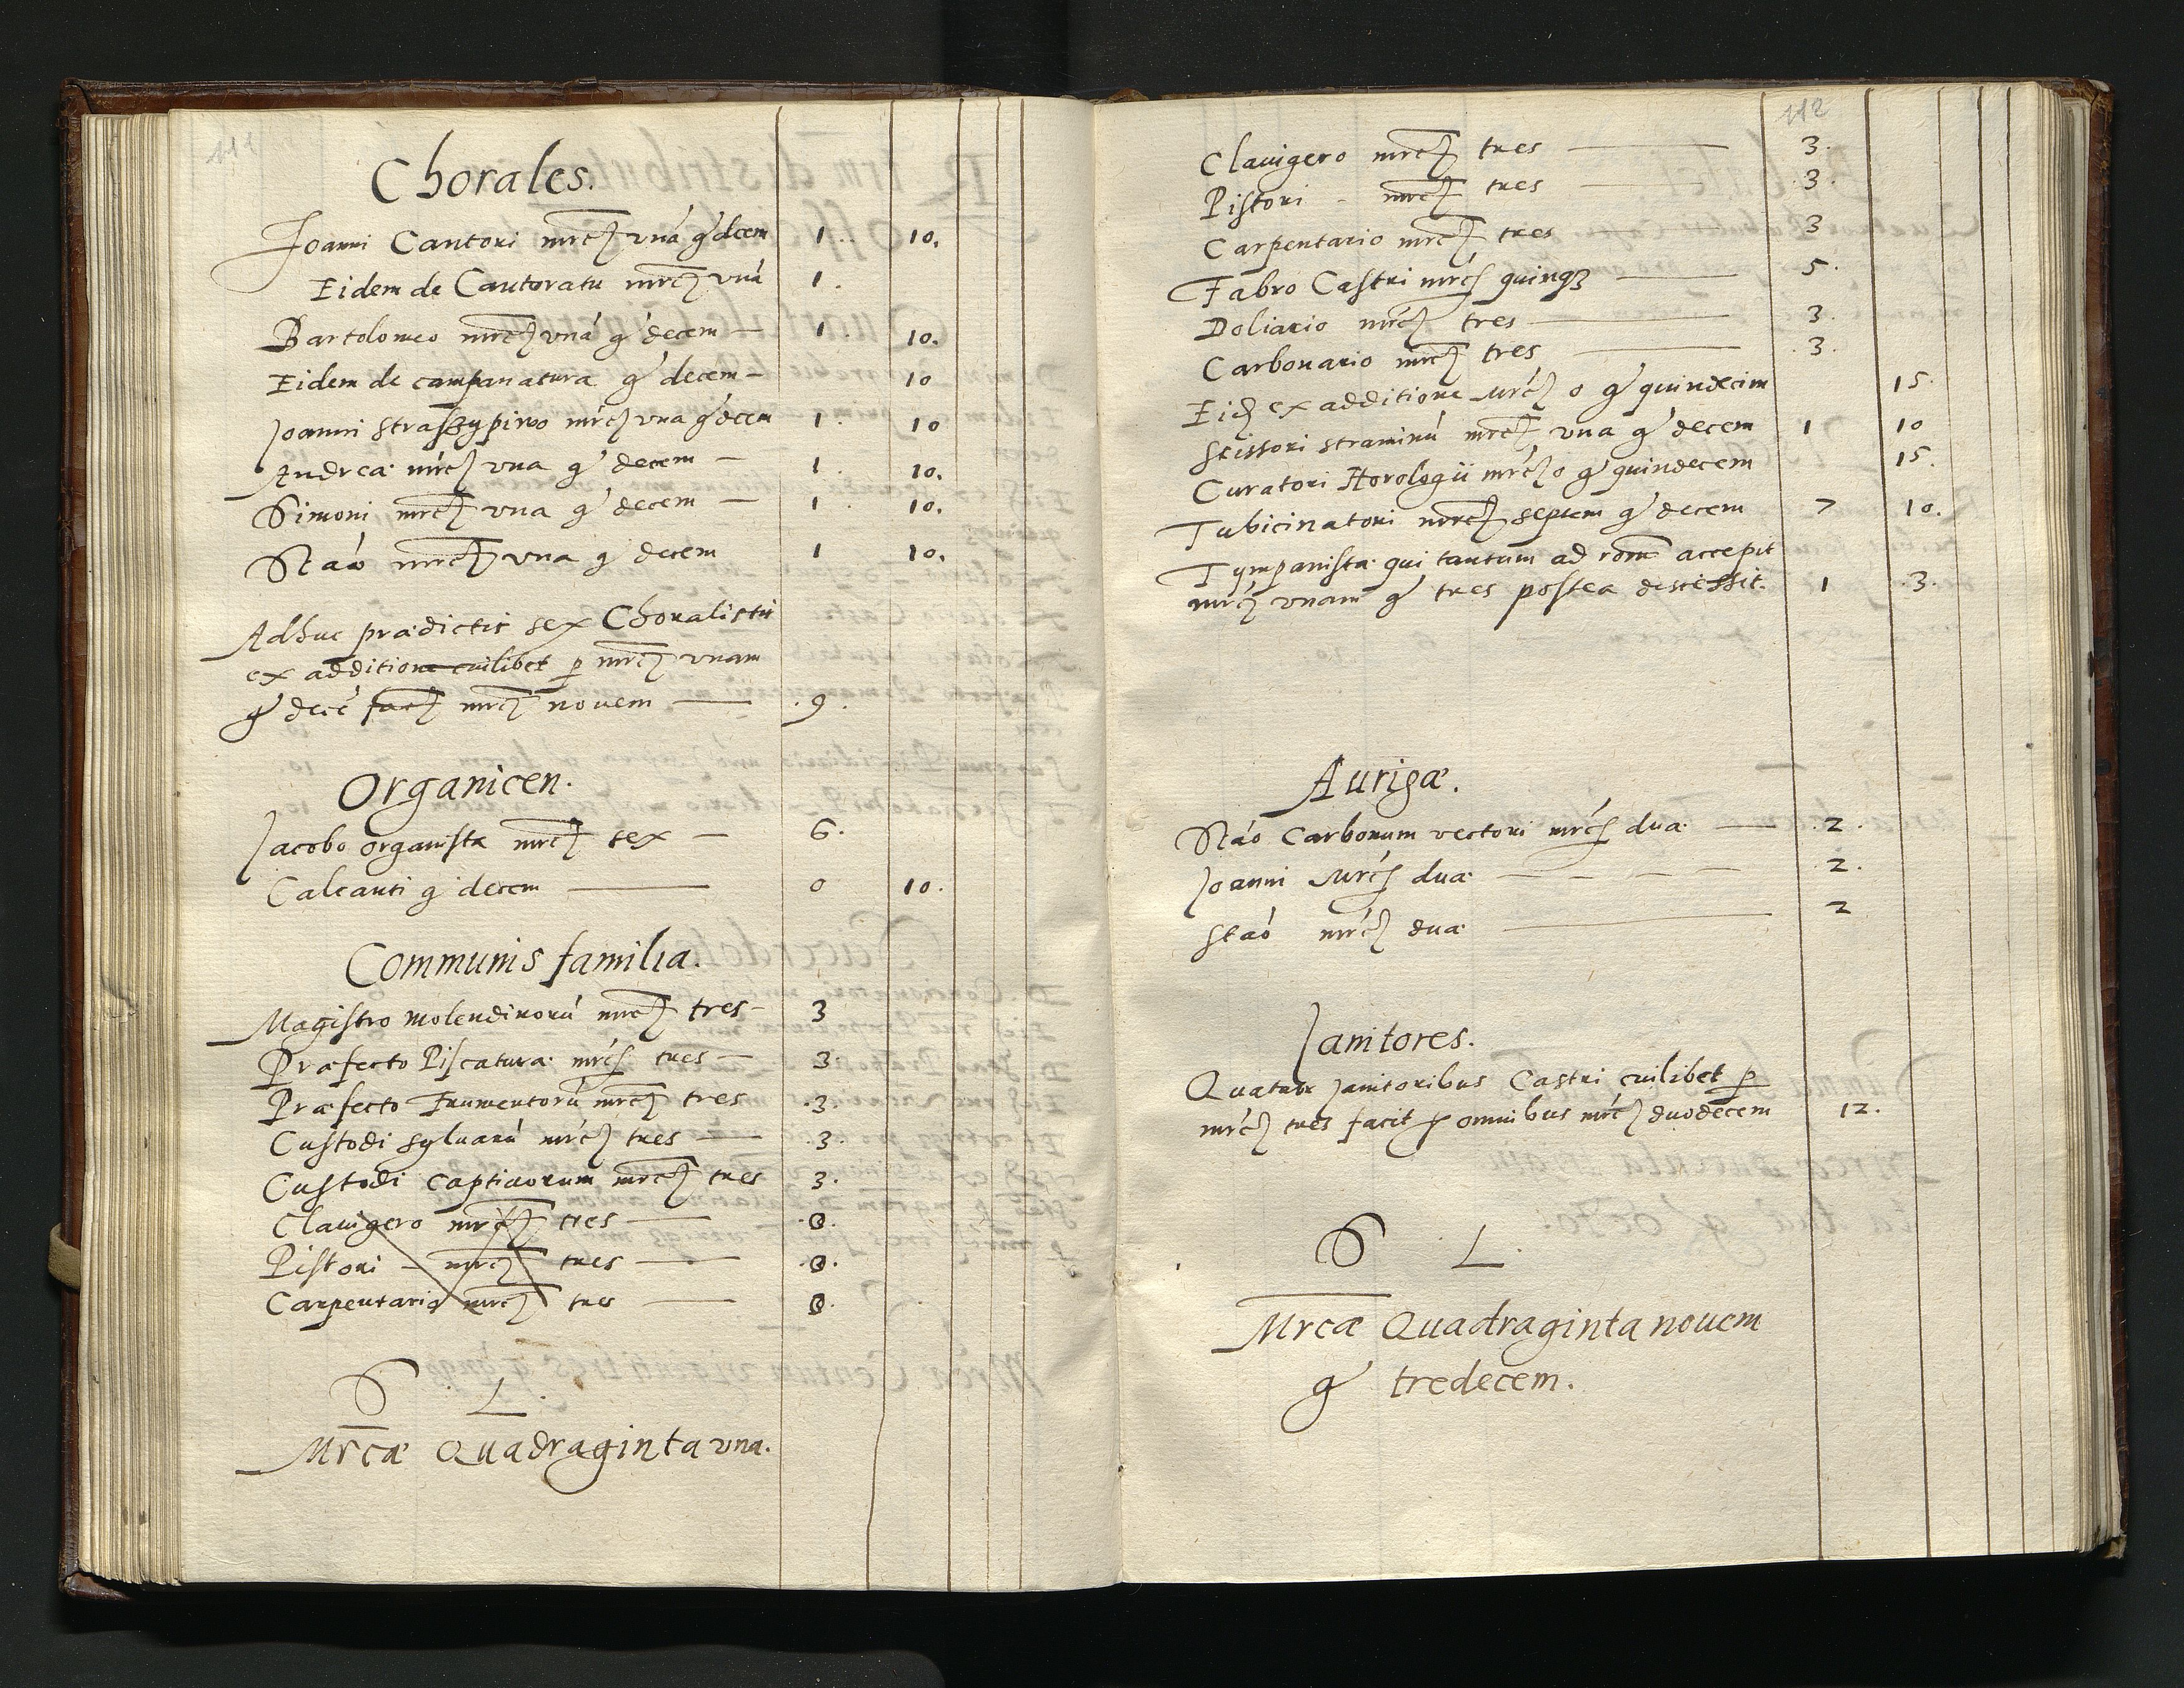 111
Chorales.
Joanni Cantori mrcȝ vná g decem 1. 10.
Eidem de Cantoratu mrcȝ vná 1.
Bartolomeo mrcȝ vná g decem — 1. 10.
Eidem de campanatura g decem — 10
Joanni Straszypiwo mrcȝ vna g decem 1. 10
Andreæ mrcȝ vna g decem — 1. 10.
Simoni mrcȝ vna g decem — 1. 10.
Stáo mrcȝ vna g decem 1 10.
Adhuc prædictis sex Choralistis
ex additione cuilibet p mrcȝ vnam
g decē facȝ mrcȝ nouem — .9.
Organicen.
Jacobo organistæ mrcȝ sex — 6.
Calcanti g decem — 0 10.
Communis familia.
Magistro molendinorú mrcȝ tres — 3
Præfecto Piscaturæ mrcȝ tres — 3.
Præfecto Frumentorú mrcȝ tres .3.
Custodi syluarú mrcȝ tres — .3.
Custodi captiuorum mrcȝ tres 3.
Clauigero mrcȝ tres — .0.
Pistori — mrcȝ tres — .0.
Carpentario mrcȝ tres — 0.
S L.
Mrcæ Quadraginta vna.
112
Clauigero mrcȝ tres — 3.
Pistori - mrcȝ tres — .3.
Carpentario mrcȝ tres — 3
Fabro Castri mrcȝ quinqȝ — 5.
Doliario mrcȝ tres — 3.
Carbonario mrcȝ tres — .3.
Eidȝ ex additione mrcȝ o g quindecim 15.
Scissori straminú mrcȝ vna g decem 1 10
Curatori Horologii mrcȝ o g quindecem 15.
Tubicinatori mrcȝ septem g decem 7 10.
Tympanistæ qui tantum ad rōm accepit
mrcȝ vnam g tres postea discessit. 1 .3.
Aurigæ.
Stáo Carbonum vectori mrcȝ duæ — .2.
Joanni mrcȝ duæ — — — — 2.
Stáo mrcȝ duæ — 2
Janitores.
Quatuor janitoribus Castri cuilibet p
mrcȝ tres facit p omnibus mrcȝ duodecem 12.
S L.
Mrcæ Quadraginta nouem
g tredecem.